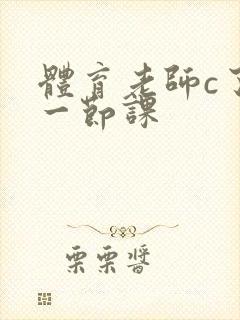 體育老師c了
一節課
栗栗醬